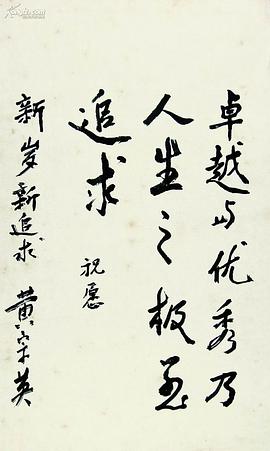 卓越与优秀乃
人生之极至
追求
祝愿
新岁新追求
黄宗英